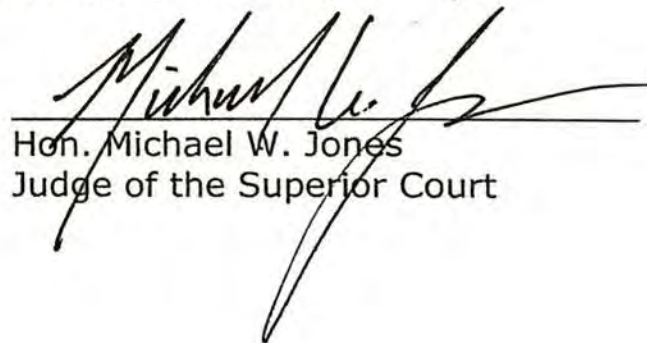 Michael W. Jones
Hon. Michael W. Jones
Judge of the Superior Court